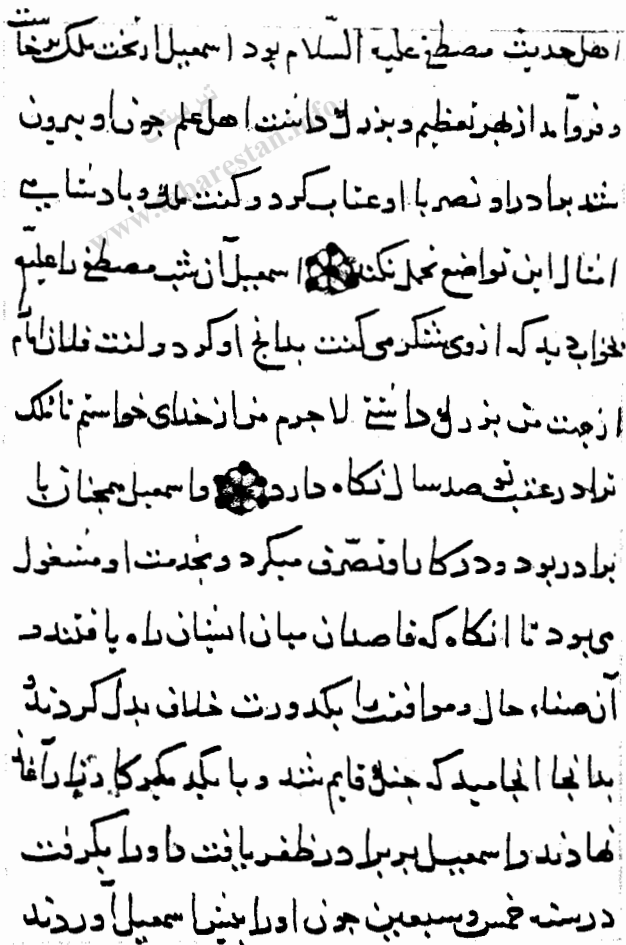 اهل حدیث مصطفی علیه السّلام بود اسمعیل از تخت ملک برخاست
و فروآمد از بهر تعظیم و بزرگ داشت اهل علم چون او بیرون
شد برادر او نصر با او عتاب کرد و کفت ملک و بادشاهی
امثال این تواضع تحمل نکند اسمعیل آن شب مصطفی را علیه
بخواب دید که از وی شکر می کفت بدانج او کرد و کفت فلان امام
از جهت من بزرگ داشتی لاجرم من از خدای خواستم تا ملک
ترا در عقب تو صد سال نکاه دارد و اسمعیل همجنان با
برادر بود و در کار او تصرّف میکرد و بخدمت او مشغول
می بود تا انکاه که قاصدان میان ایشان راه یافتند و
آن صفاء حال و موافقت را بکدورت خلاف بدل کردند و
بدانجا انجامید که جنک قایم شد و با یکدیکر کارزار آغاز
نهادند و اسمعیل بر برادر ظفر یافت و او را بکرفت
در سنه خمس و سبعین جون او را بیش اسمعیل آوردند
www.tabarestan.info
تبرستان